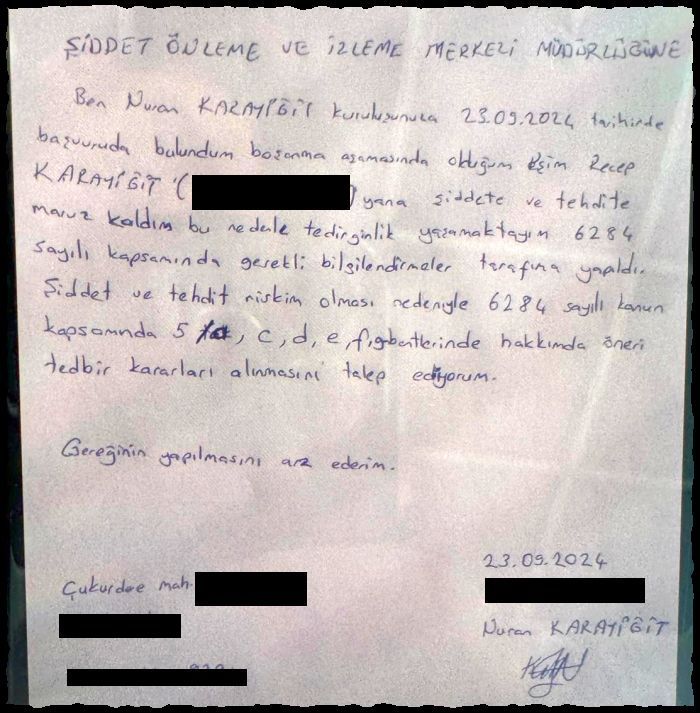 ŞİDDET ÖNLEME VE İZLEME MERKEZİ MÜDÜRLÜĞÜNE
Ben Nuran KARAYİĞİT kuruluşunuza 23.09.2024 tarihinde
başvuruda bulundum boşanma aşamasında olduğum Eşim Recep
KARAYİĞİT ( ) yana şiddete ve tehdite
maruz kaldım bu nedenle tedirginlik yaşamaktayım 6284
sayılı kapsamında gerekli bilgilendirmeler tarafıma yapıldı.
Şiddet ve tehdit riskim olması nedeniyle 6284 sayılı kanun
kapsamında 5 /a, c, d, e, f, g bentlerinde hakkımda öneri
tedbir kararları alınmasını talep ediyorum.
Gereğinin yapılmasını arz ederim.
23.09.2024
Çukurdere mah.
Nuran KARAYİĞİT